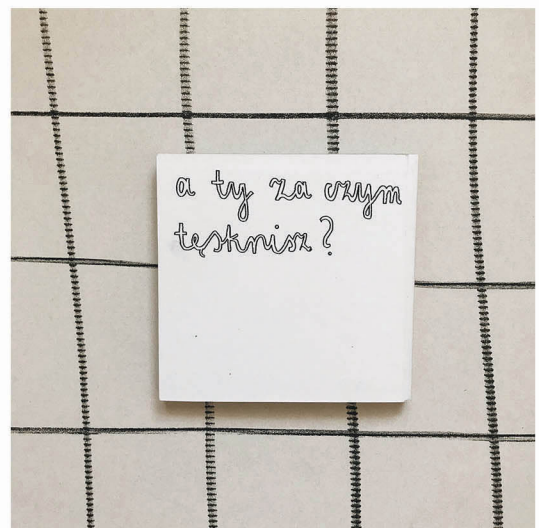 a ty za czym
tęsknisz?